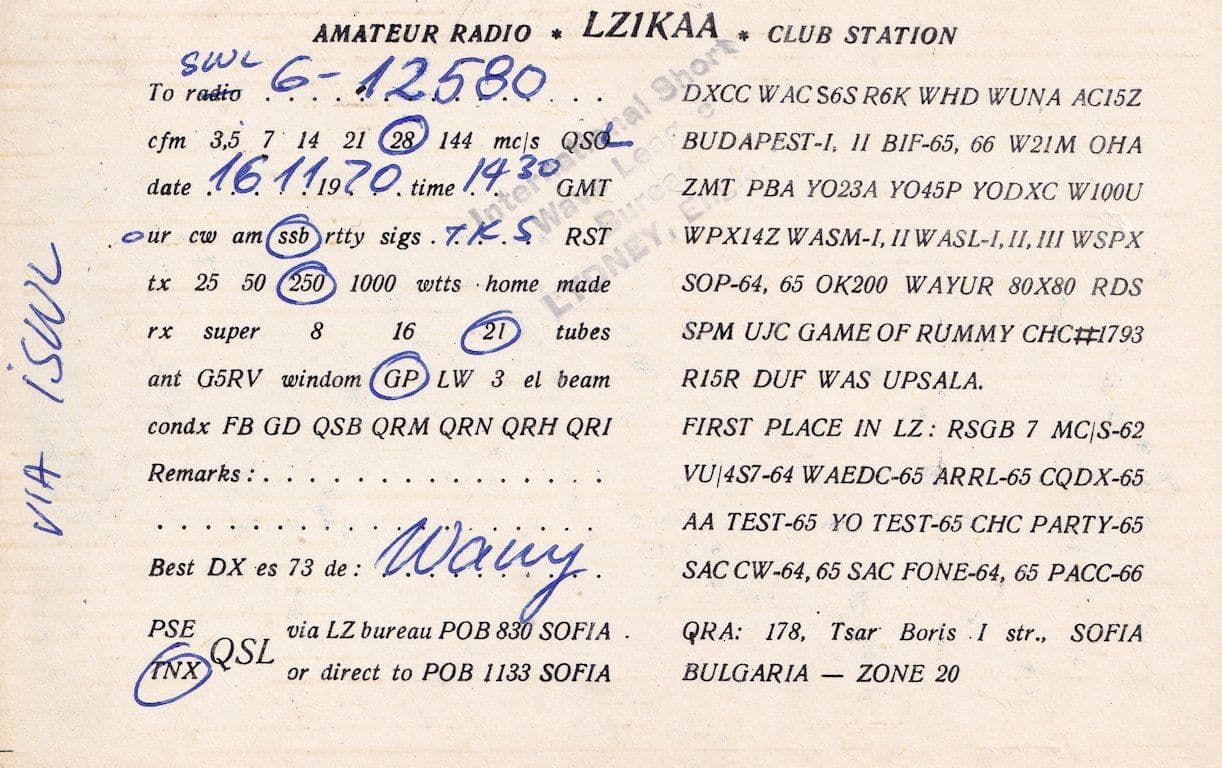 AMATEUR RADIO * LZ1KAA * CLUB STATION
SWL
To radio 6-12580
cfm 3,5 7 14 21 28 144 mc|s QSL
date 16 11 1970 time 1430 GMT
our cw am ssb rtty sigs TKS RST
tx 25 50 250 1000 wtts home made
rx super 8 16 21 tubes
ant G5RV windom GP LW 3 el beam
condx FB GD QSB QRM QRN QRH QRI
Remarks :
Best DX es 73 de :
PSE
TNX
QSL
via LZ bureau POB 830 SOFIA
or direct to POB 1133 SOFIA
VIA iSWL
International Short
Wave League
Bureau
LYDNEY,
DXCC WAC S6S R6K WHD WUNA AC15Z
BUDAPEST-I, II BIF-65, 66 W21M OHA
ZMT PBA YO23A YO45P YODXC W100U
WPX14Z WASM-I, II WASL-I, II, III WSPX
SOP-64, 65 OK200 WAYUR 80X80 RDS
SPM UJC GAME OF RUMMY CHC#1793
R15R DUF WAS UPSALA.
FIRST PLACE IN LZ : RSGB 7 MC|S-62
VU|4S7-64 WAEDC-65 ARRL-65 CQDX-65
AA TEST-65 YO TEST-65 CHC PARTY-65
SAC CW-64, 65 SAC FONE-64, 65 PACC-66
QRA: 178, Tsar Boris I str., SOFIA
BULGARIA — ZONE 20